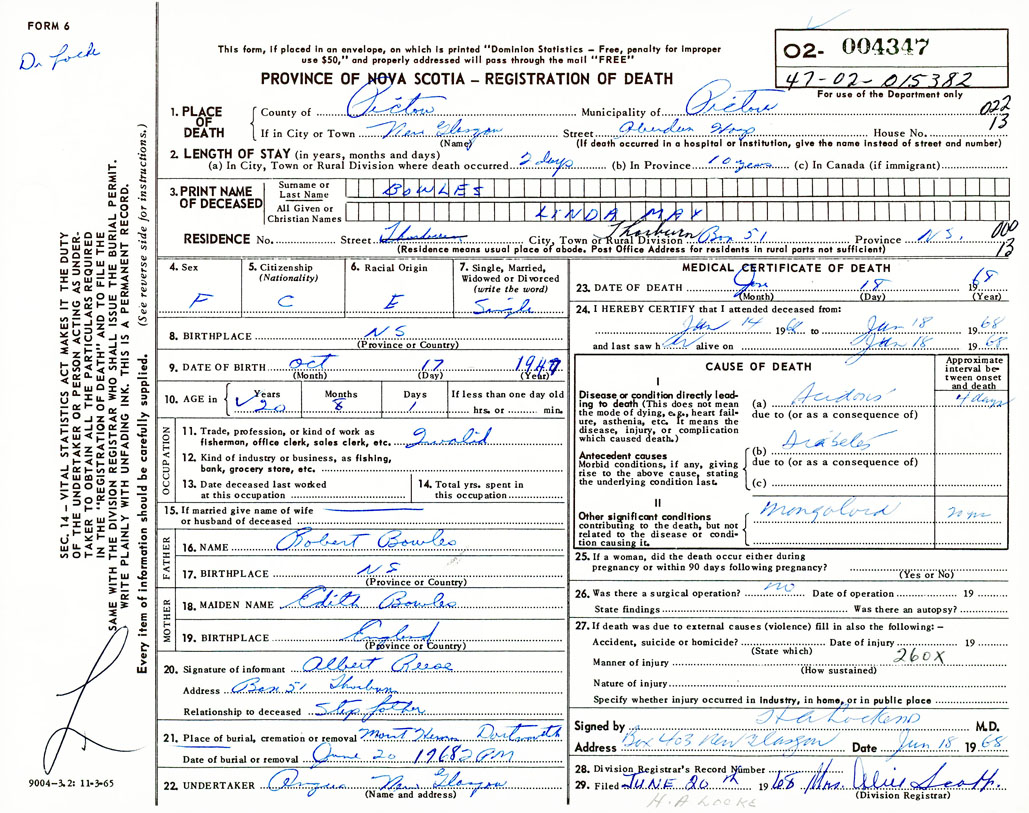 FORM 6
Dr Locke
This form, if placed in an envelope, on which is printed "Dominion Statistics – Free, penalty for improper
use $50," and properly addressed will pass through the mail "FREE"
PROVINCE OF NOVA SCOTIA – REGISTRATION OF DEATH
O2- 004347
47-02-015382
For use of the Department only
1. PLACE OF DEATH
County of Pictou Municipality of Pictou 022
If in City or Town New Glasgow Street Aberdeen Hosp House No. 13
(Name) (If death occurred in a hospital or institution, give the name instead of street and number)
2. LENGTH OF STAY (in years, months and days)
(a) In City, Town or Rural Division where death occurred 2 days (b) In Province 10 years (c) In Canada (if immigrant)
3. PRINT NAME OF DECEASED
Surname or Last Name BOWLES
All Given or Christian Names LINDA MAY
RESIDENCE No. Street Thorburn City, Town or Rural Division Thorburn Box 51 Province N.S. 000 13
(Residence means usual place of abode. Post Office Address for residents in rural parts not sufficient)
4. Sex
F
5. Citizenship
(Nationality)
C
6. Racial Origin
E
7. Single, Married,
Widowed or Divorced
(write the word)
Single
8. BIRTHPLACE NS
(Province or Country)
9. DATE OF BIRTH Oct 17 1947
(Month) (Day) (Year)
10. AGE in Years Months Days If less than one day old
20 8 1 hrs. or min.
OCCUPATION
11. Trade, profession, or kind of work as
fisherman, office clerk, sales clerk, etc. Invalid
12. Kind of industry or business, as fishing,
bank, grocery store, etc.
13. Date deceased last worked
at this occupation
14. Total yrs. spent in
this occupation
15. If married give name of wife
or husband of deceased
FATHER
16. NAME Robert Bowles
17. BIRTHPLACE NS
(Province or Country)
MOTHER
18. MAIDEN NAME Edith Bowles
19. BIRTHPLACE England
(Province or Country)
20. Signature of informant Albert Reese
Address Box 51 Thorburn
Relationship to deceased Step father
21. Place of burial, cremation or removal Mount Dartmouth
Date of burial or removal June 20 1968 2 PM
22. UNDERTAKER Angus New Glasgow
(Name and address)
MEDICAL CERTIFICATE OF DEATH
23. DATE OF DEATH June 18 1968
(Month) (Day) (Year)
24. I HEREBY CERTIFY that I attended deceased from:
Jun 14 1968 to Jun 18 1968
and last saw her alive on Jun 18 1968
CAUSE OF DEATH
Approximate
interval be-
tween onset
and death
I
Disease or condition directly lead-
ing to death (This does not mean
the mode of dying, e.g., heart fail-
ure, asthenia, etc. It means the
disease, injury, or complication
which caused death.)
(a) Acidosis 4 days
due to (or as a consequence of)
Antecedent causes
Morbid conditions, if any, giving
rise to the above cause, stating
the underlying condition last.
(b) Diabetes
due to (or as a consequence of)
(c)
II
Other significant conditions
contributing to the death, but not
related to the disease or condi-
tion causing it.
Mongoloid
25. If a woman, did the death occur either during
pregnancy or within 90 days following pregnancy?
(Yes or No)
26. Was there a surgical operation? no Date of operation 19
State findings Was there an autopsy?
27. If death was due to external causes (violence) fill in also the following: –
Accident, suicide or homicide? Date of injury 19
(State which)
Manner of injury 260X
(How sustained)
Nature of injury
Specify whether injury occurred in industry, in home, or in public place
Signed by M.D.
Address Box 403 New Glasgow Date Jun 18 1968
28. Division Registrar's Record Number
29. Filed JUNE 20th 1968 Mrs. Alice Scott
(Division Registrar)
H.A LOCKE
SEC. 14 – VITAL STATISTICS ACT MAKES IT THE DUTY
OF THE UNDERTAKER OR PERSON ACTING AS UNDER-
TAKER TO OBTAIN ALL THE PARTICULARS REQUIRED
IN THE "REGISTRATION OF DEATH" AND TO FILE THE
SAME WITH THE DIVISION REGISTRAR WHO SHALL ISSUE THE BURIAL PERMIT.
WRITE PLAINLY WITH UNFADING INK. THIS IS A PERMANENT RECORD.
Every item of information should be carefully supplied. (See reverse side for instructions.)
9004–3.2: 11-3-65